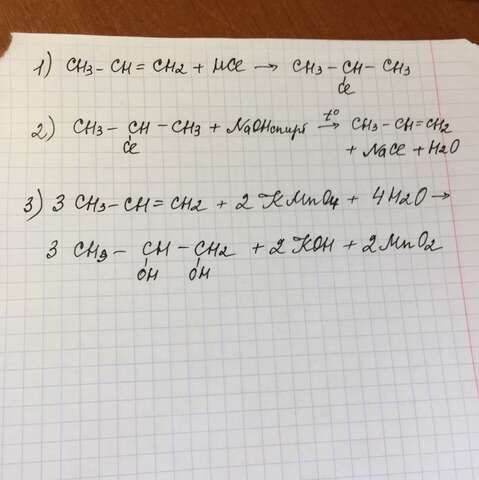 1) CH3 - CH = CH2 + HCl → CH3 - CH - CH3
Cl
2) CH3 - CH - CH3 + NaOH спирт t° → CH3 - CH = CH2
Cl + NaCl + H2O
3) 3 CH3 - CH = CH2 + 2 KMnO4 + 4H2O →
3 CH3 - CH - CH2 + 2 KOH + 2 MnO2
OH OH